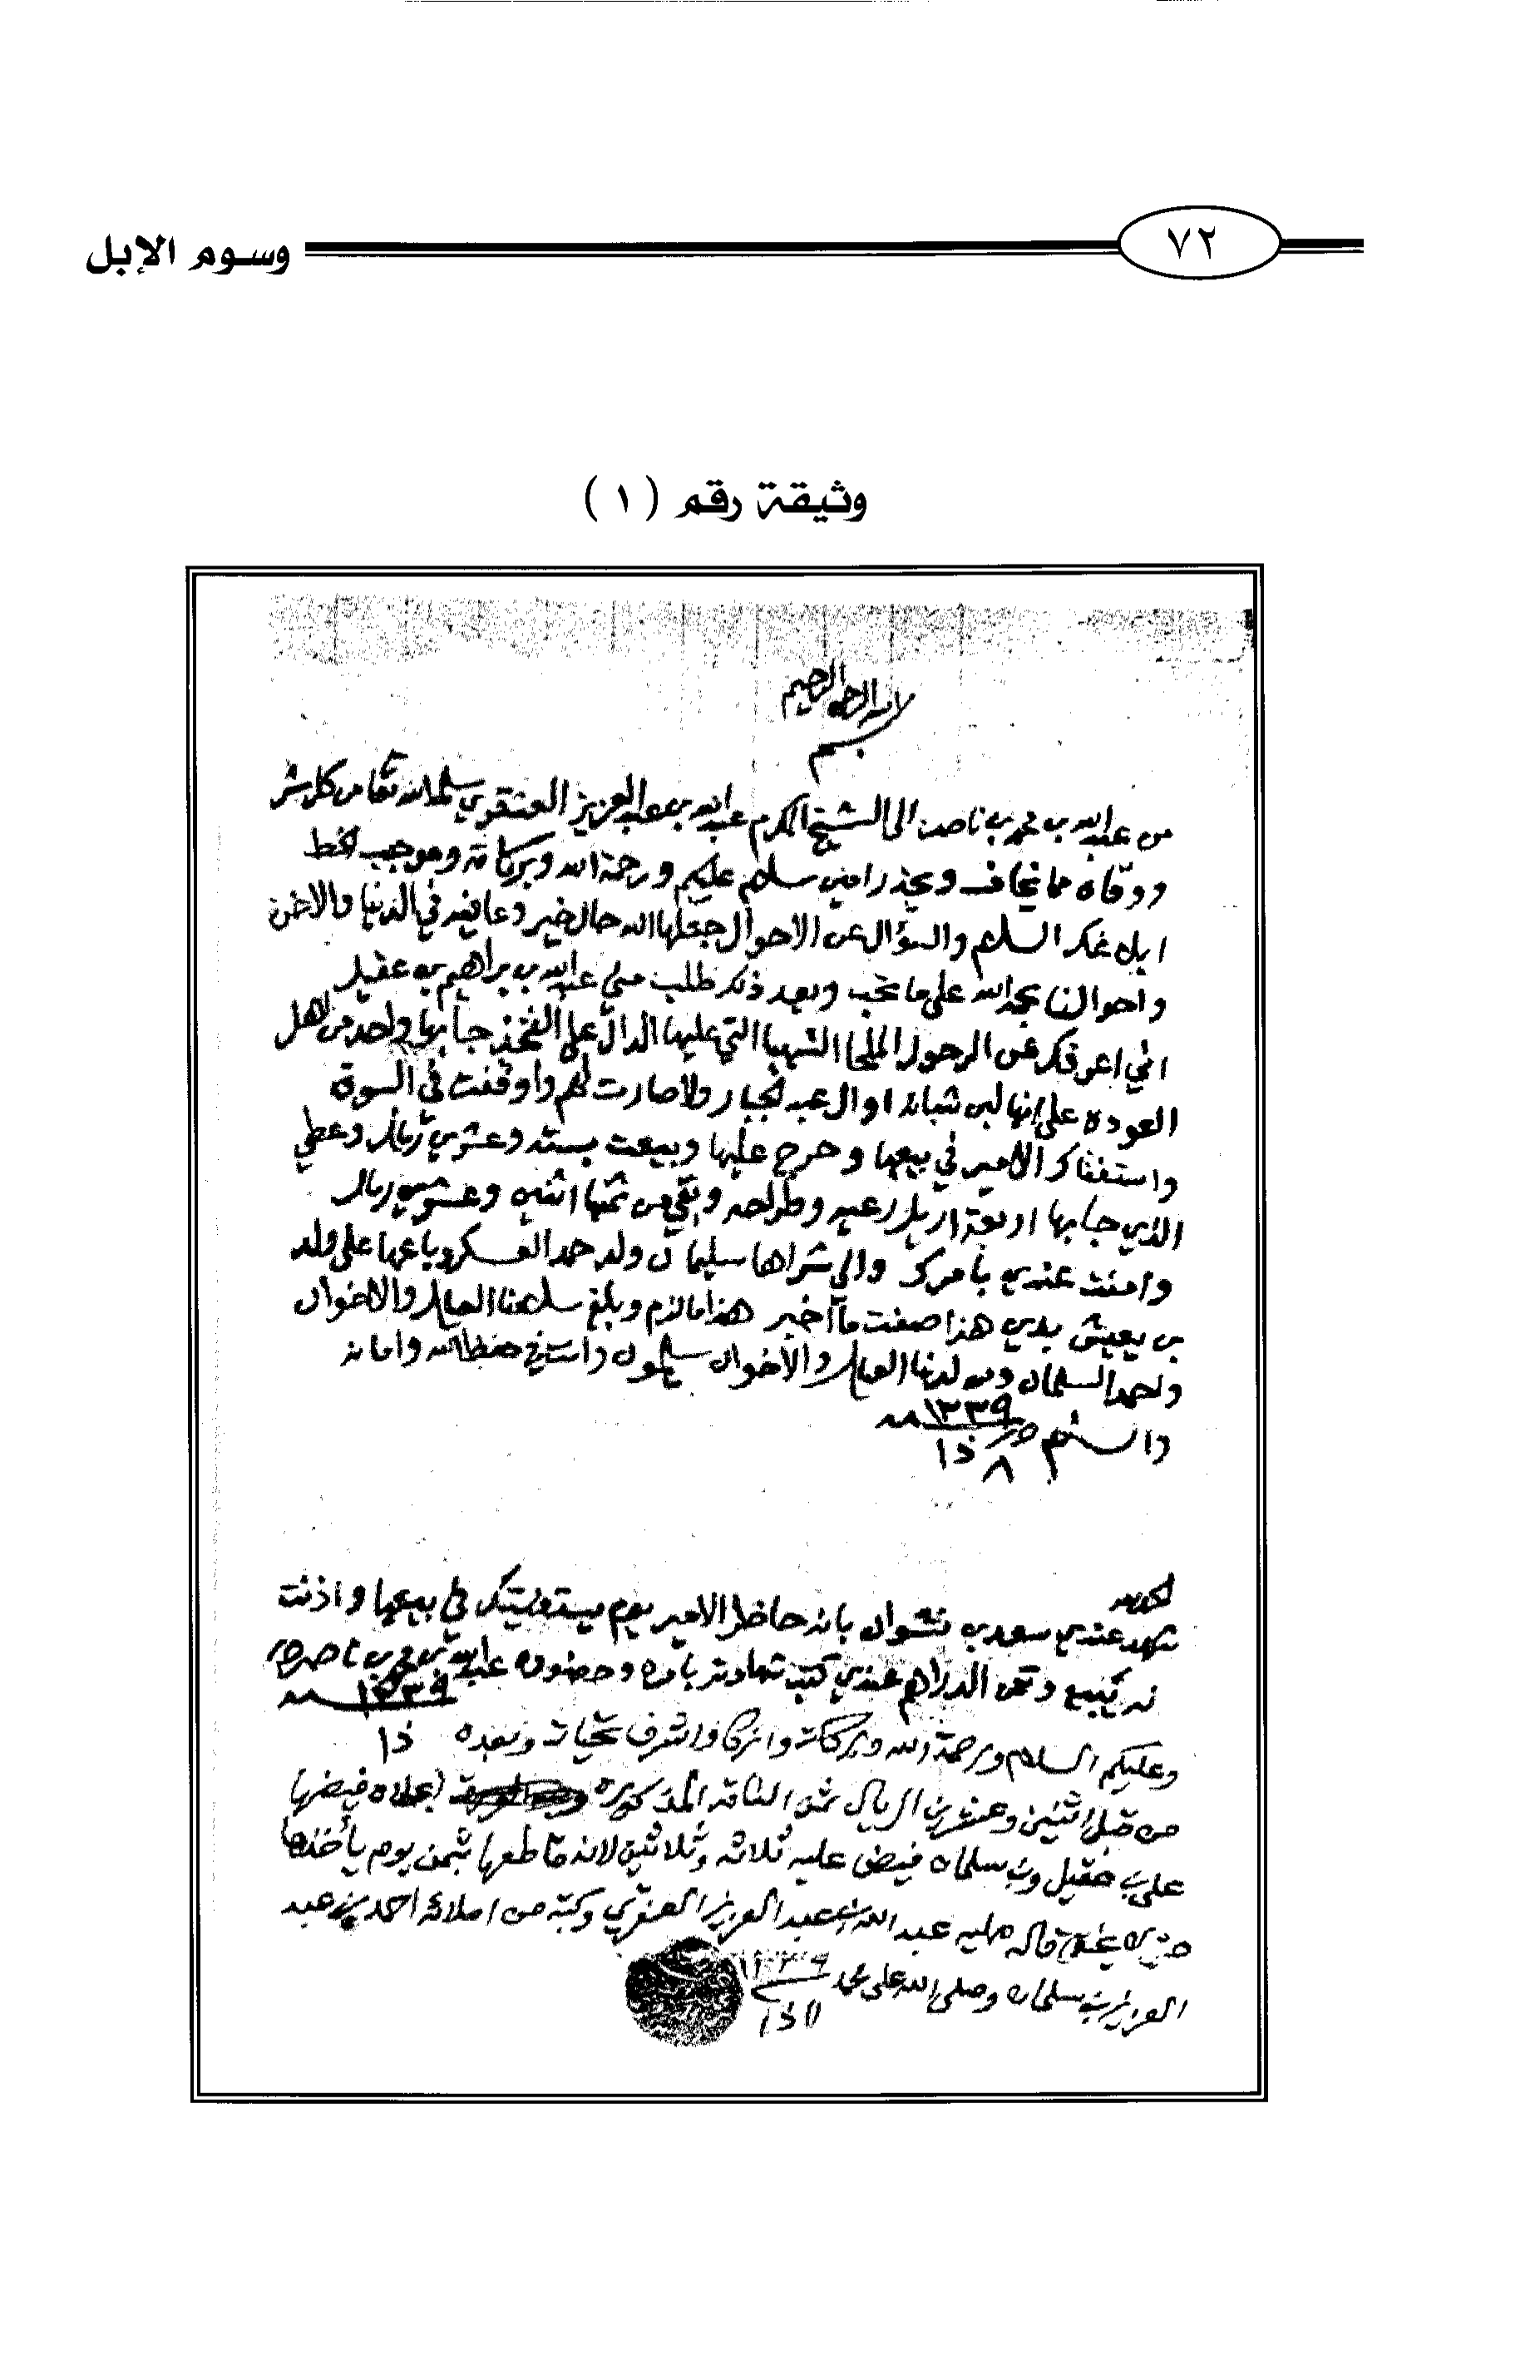 ٧٢
وسوم الإبل
وثيقة رقم (١)
بسم الله الرحمن الرحيم
من عبدالله بن محمد بن ناصر الى الشيخ المكرم عبدالله بن عبدالعزيز العنقري سلمه الله تعا من كل شر
ووقاه مما يخاف ويحذر امين سلام عليكم ورحمة الله وبركاته وموجب الخط
ابلاغك السلام والسؤال عن الاحوال جعلها الله حال خير وعافيه في الدنيا والاخره
واحوالنا بحمدالله على ما تحب وبعد ذلك طلب مني عبدالله بن براهيم بن عقيل
اني اعرفك عن الرحول الملحا الشهبا التي عليها الدال على الفخذ جابها واحد من اهل
العوده على انها لبن شبانه او ال عبدالجبار ولا صارت لهم واوقفت في السوق
واستفتاك الامير في بيعها وحرج عليها وبيعت بسته وعشرين ريال وعطي
الذي جابها اربعة اريل رعيه وطراحه وبقي من ثمنها اثنين وعشرين ريال
وامنت عندي بامرك والي شراها سليمان ولد حمد العسكر وباعها على ولد
بن يعيش بدي هذا صفت ما اخبر هذا ما لزم وبلغ سلامنا العيال والاخوان
وحمد السلمان ومن لدينا العيال والاخوان يسلمون وانت في حفظ الله وامانه
والسلام ١٣٣٩
٨ ذا
الحمد لله
شهد عندي سعد بن نشوان بانه حاظر الامير يوم يستفتيك في بيعها واذنت
له يبيع وثمن الدراهم عندي كتب شهادته بامره وحضوره عبدالله بن محمد بن ناصر
١٣٣٩
ذا
وعليكم السلام ورحمة الله وبركاته وازكا واشرف تحيات وبعده
من قبل اثنين وعشرين الريال ثمن الناقه المذكوره اعلاه فيضها
على بن عقيل وبن سلمان فيض عليه ثلاثه وثلاثين لانه قاطعها بثمن يوم يأخذها
قاله مليه عبدالله بن عبدالعزيز العنقري وكتبه من املائه احمد بن عبد
العزيز بن سلمان وصلى الله على محمد ١٣٣٩
١١ ذا